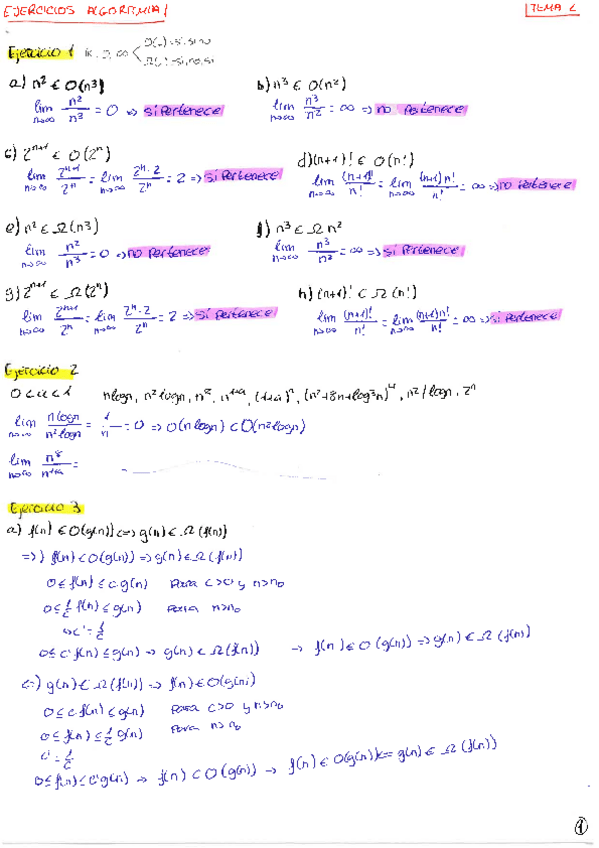 EJERCICIOS ALGORITMIA
TEMA 2
Ejercicio 1 k, 0, ∞ O(.)=si,si,no
Ω(.)=si,no,si
a) n² ∈ O(n3)
lim n→∞ n²/n³ = 0 => si pertenece
b) n³ ∈ O(n²)
lim n→∞ n³/n² = ∞ => no pertenece
c) 2ⁿ⁺¹ ∈ O(2ⁿ)
lim n→∞ 2ⁿ⁺¹/2ⁿ = lim n→∞ 2ⁿ·2/2ⁿ = 2 => si pertenece
d) (n+1)! ∈ O(n!)
lim n→∞ (n+1)!/n! = lim n→∞ (n+1)n!/n! = ∞ => no pertenece
e) n² ∈ Ω(n3)
lim n→∞ n²/n³ = 0 => no pertenece
f) n³ ∈ Ω n²
lim n→∞ n³/n² = ∞ => si pertenece
g) 2ⁿ⁺¹ ∈ Ω(2ⁿ)
lim n→∞ 2ⁿ⁺¹/2ⁿ = lim n→∞ 2ⁿ·2/2ⁿ = 2 => si pertenece
h) (n+1)! ∈ Ω(n!)
lim n→∞ (n+1)!/n! = lim n→∞ (n+1)n!/n! = ∞ => si pertenece
Ejercicio 2
0<a<1 nlogn, n²logn, n⁸, n¹⁺ᵃ, (1+a)ⁿ, (n²+8n+log³n)⁴, n²/logn, 2ⁿ
lim n→∞ nlogn/n²logn = 1/n = 0 => O(nlogn) ⊂ O(n²logn)
lim n→∞ n⁸/n¹⁺ᵃ =
Ejercicio 3
a) f(n) ∈ O(g(n)) <=> g(n) ∈ Ω(f(n))
=>) f(n) ∈ O(g(n)) => g(n) ∈ Ω(f(n))
0 ≤ f(n) ≤ c·g(n) para c>0 y n>n₀
0 ≤ 1/c f(n) ≤ g(n) para n>n₀
→ c' = 1/c
0 ≤ c' f(n) ≤ g(n) → g(n) ∈ Ω(f(n)) → f(n) ∈ O(g(n)) => g(n) ∈ Ω(f(n))
<=) g(n) ∈ Ω(f(n)) → f(n) ∈ O(g(n))
0 ≤ c·f(n) ≤ g(n) para c>0 y n>n₀
0 ≤ f(n) ≤ 1/c g(n) para n>n₀
c' = 1/c
0 ≤ f(n) ≤ c'g(n) → f(n) ∈ O(g(n)) → f(n) ∈ O(g(n)) <= g(n) ∈ Ω(f(n))
1